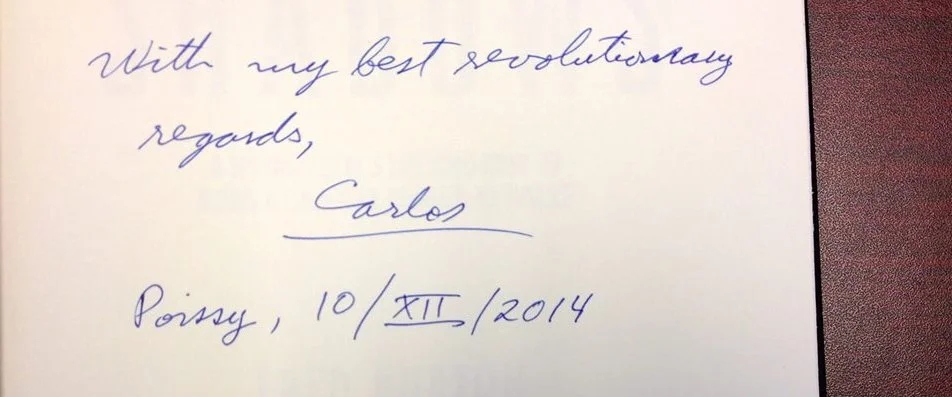 With my best revolutionary
regards,
Carlos
Poissy, 10/XII/2014